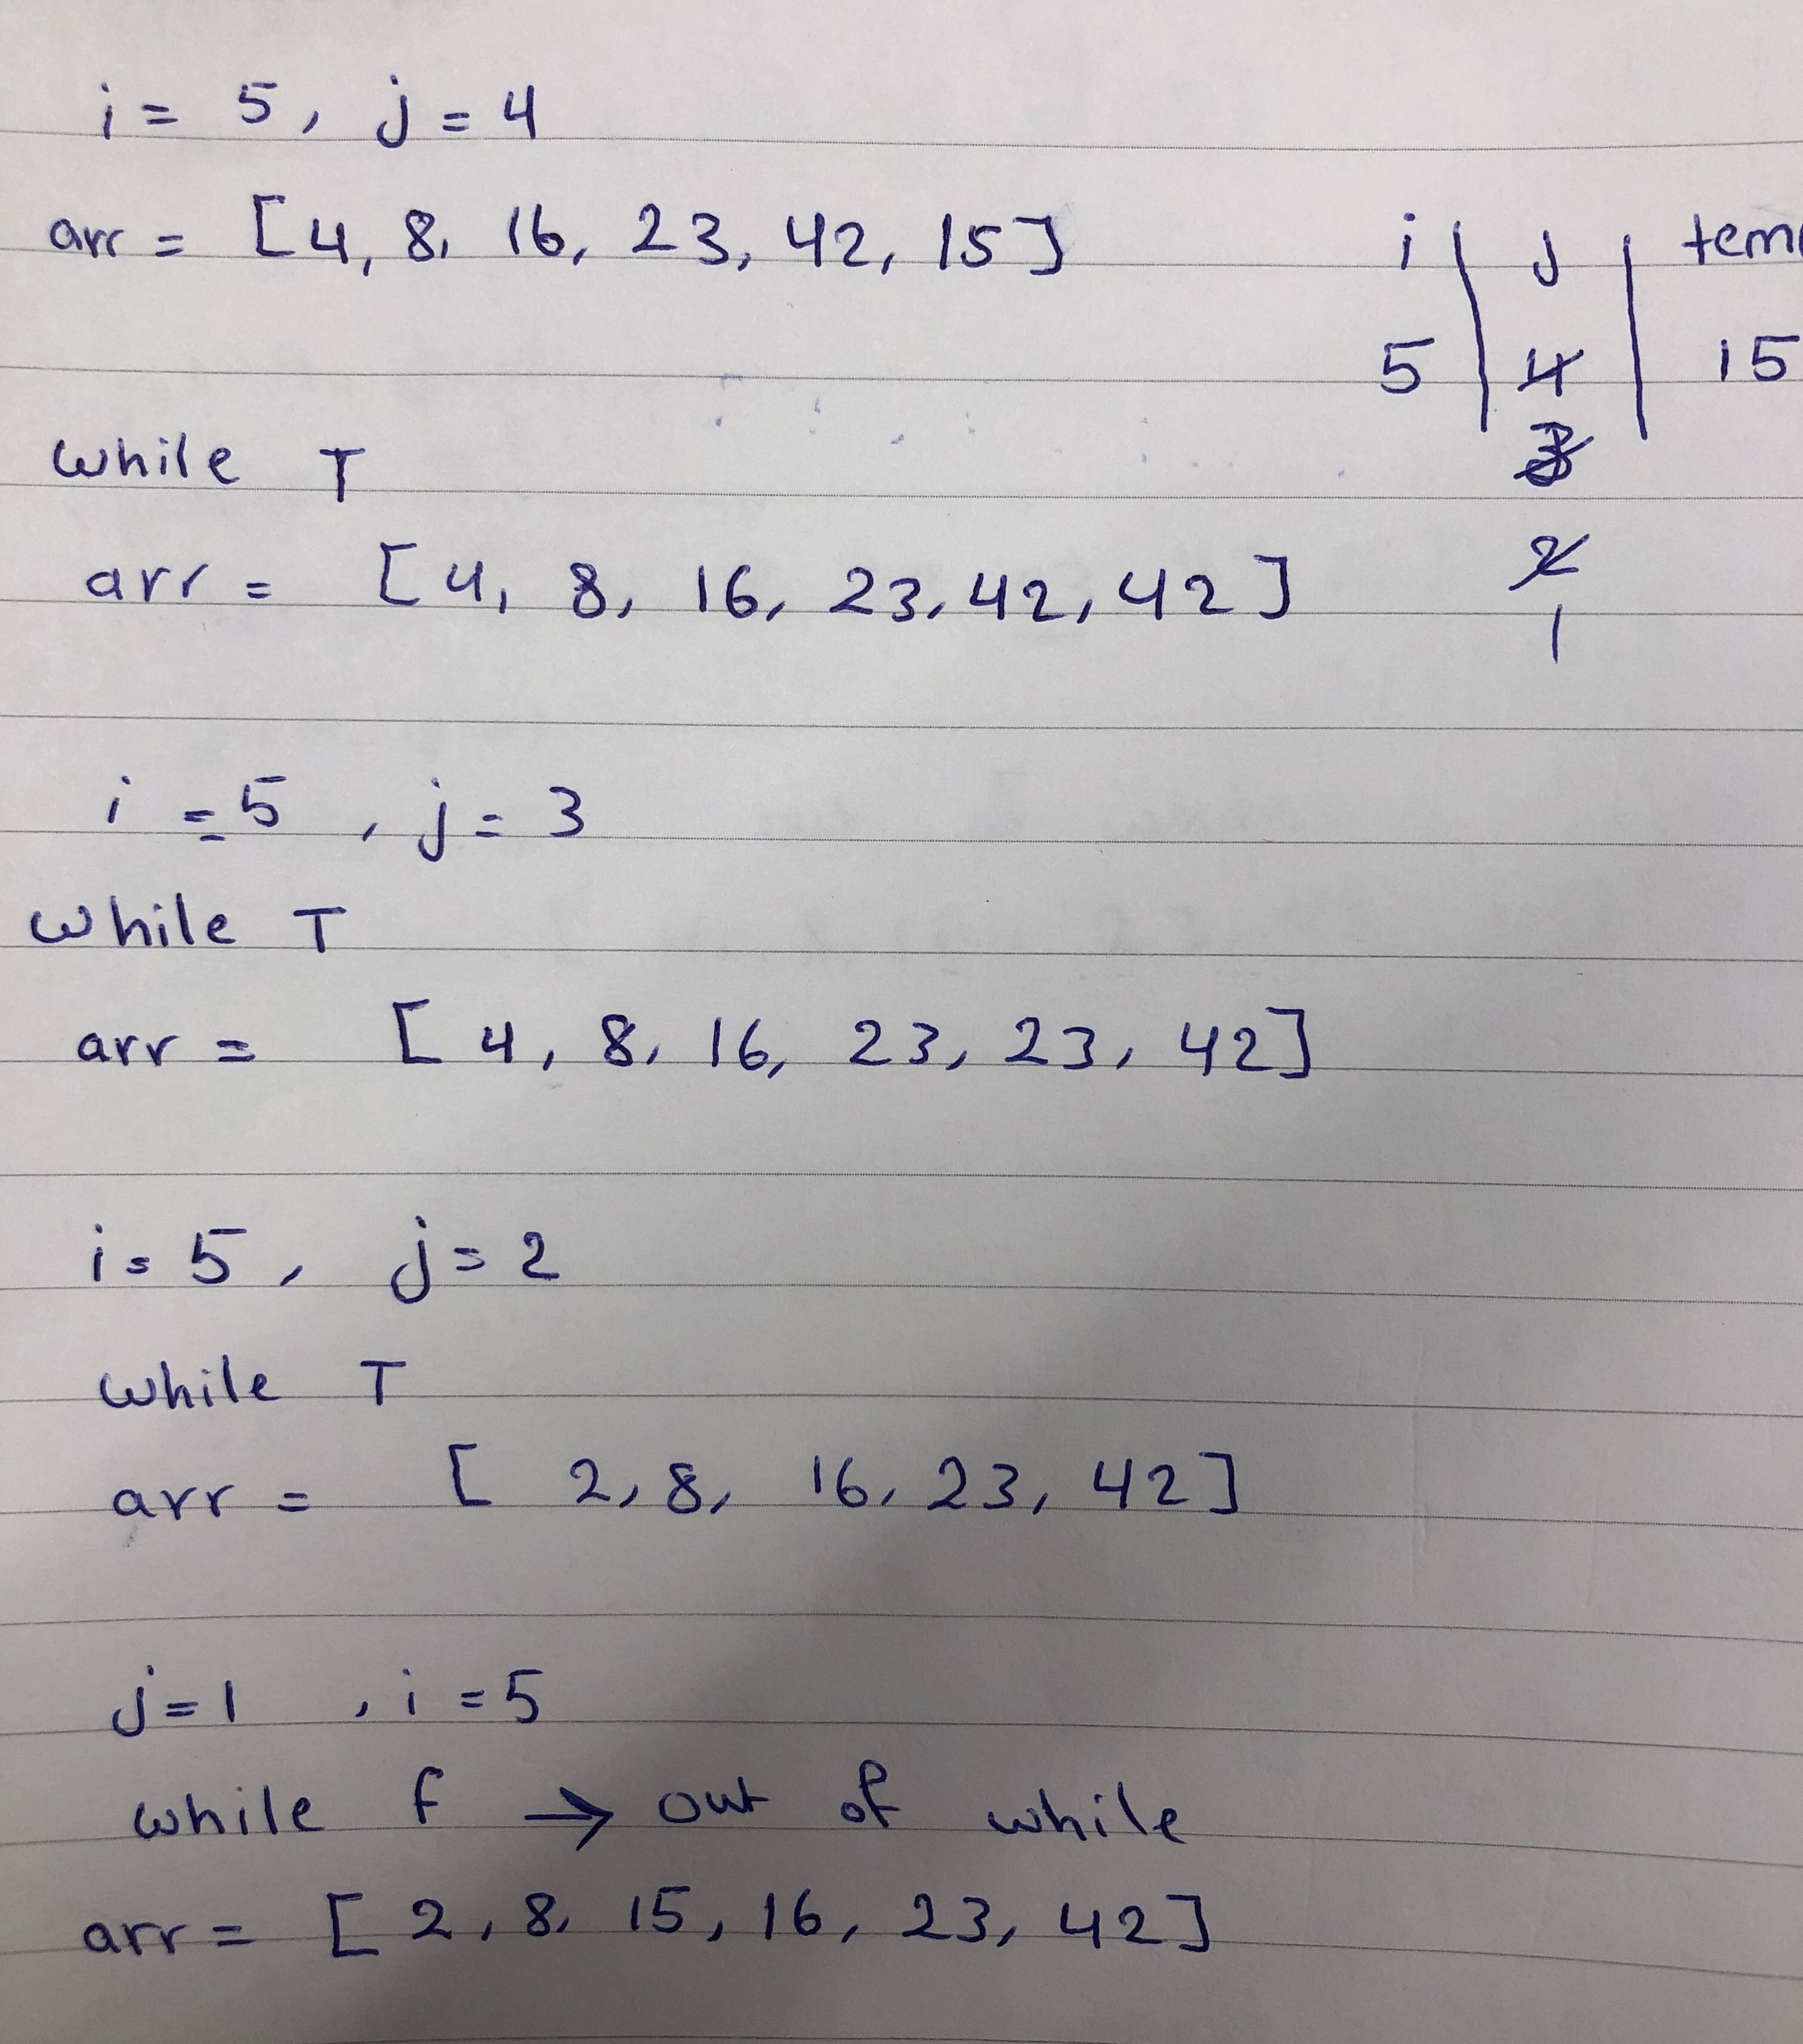 i = 5, j = 4
arr = [4, 8, 16, 23, 42, 15]
i | j | tem
5 | 4 | 15
3
2
1
while T
arr = [4, 8, 16, 23, 42, 42]
i = 5, j = 3
while T
arr = [4, 8, 16, 23, 23, 42]
i = 5, j = 2
while T
arr = [2, 8, 16, 23, 42]
j = 1, i = 5
while f → out of while
arr = [2, 8, 15, 16, 23, 42]